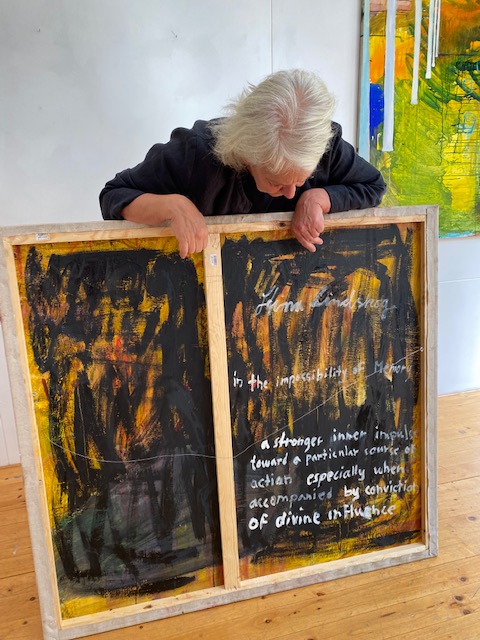 Lindskog
in the impossibility of Memory
a stronger inner impuls
toward a particular course of
action especially when
accompanied by conviction
of divine influence